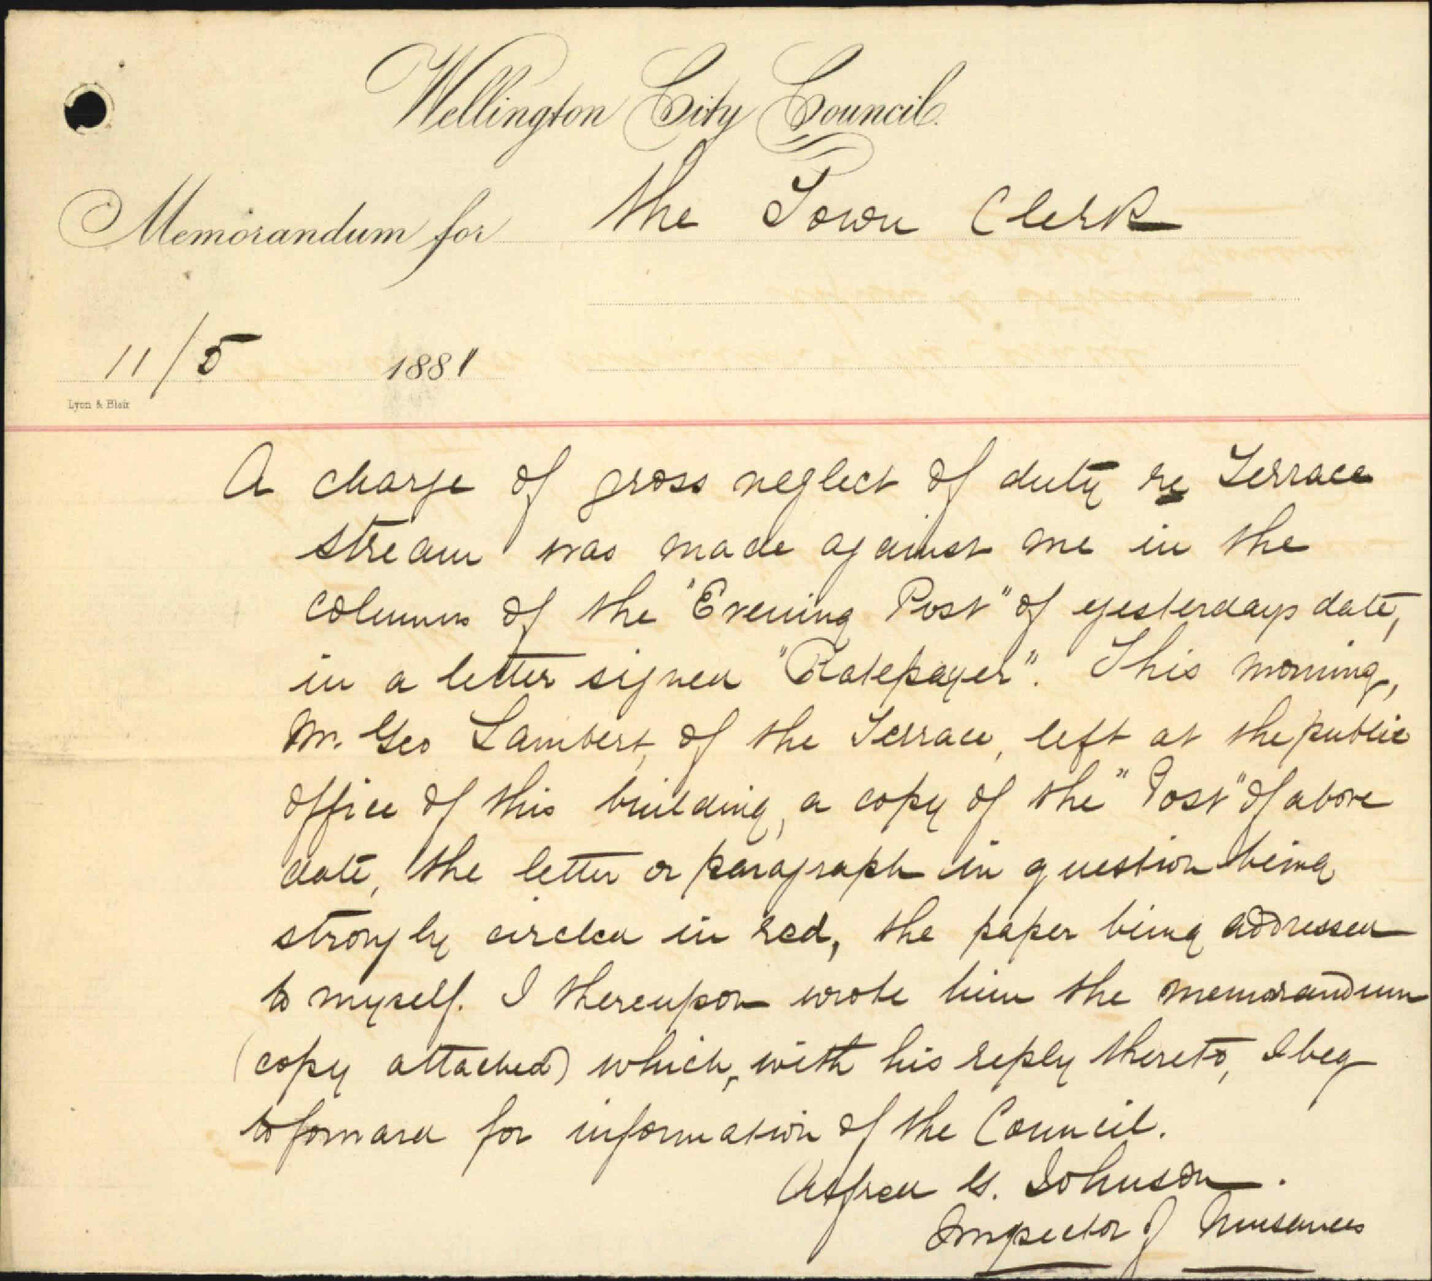 Wellington City Council.
Memorandum for the Town Clerk
11/5 1881
Lyon & Blair
A charge of gross neglect of duty re Terrace
stream was made against me in the
columns of the "Evening Post" of yesterdays date,
in a letter signed "Ratepayer". This morning,
Mr. Geo Lambert, of the Terrace, left at the public
office of this building, a copy of the "Post" of above
date, the letter or paragraph in question being
strongly circled in red, the paper being addressed
to myself. I thereupon wrote him the memorandum
(copy attached) which, with his reply thereto, I beg
to forward for information of the Council.
Alfred G. Johnson.
Inspector of Nuisances